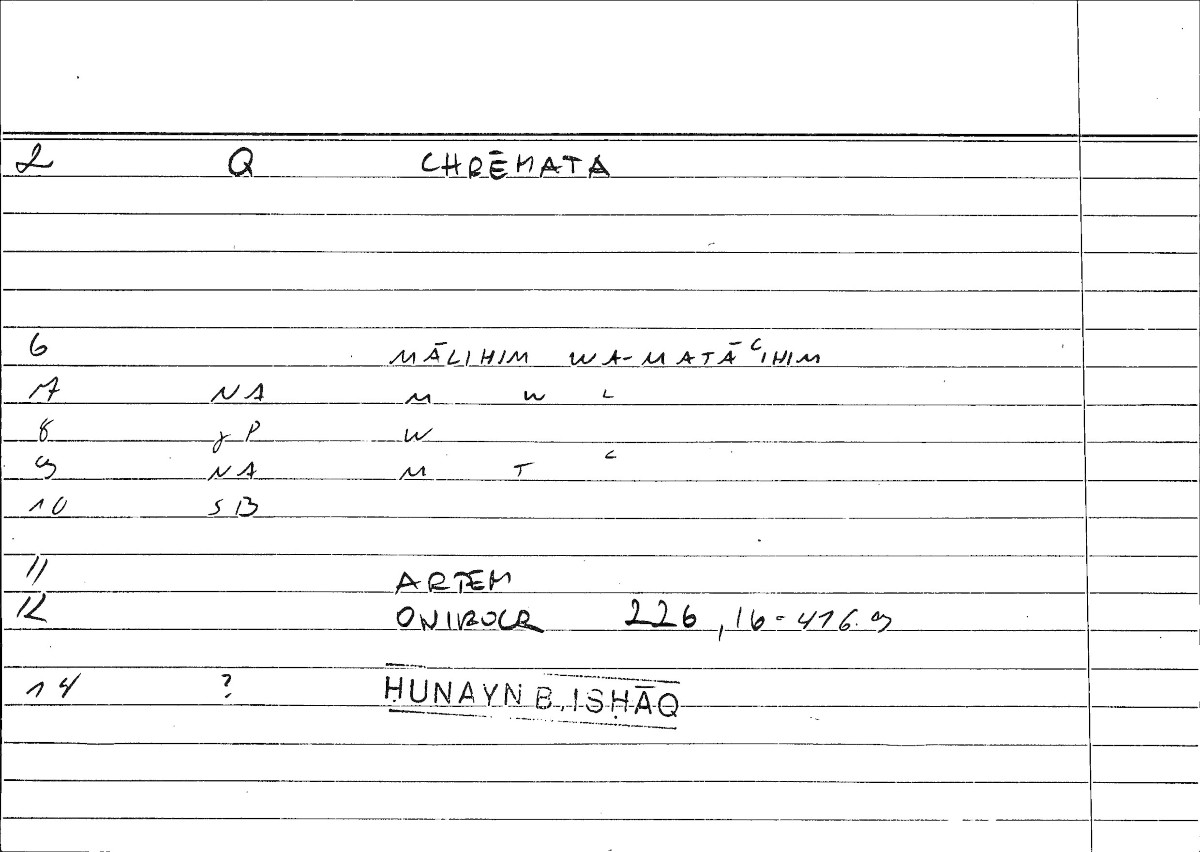 2 Q CHRĒMATA
6 MĀLIHIM WA-MATĀʿIHIM
7 NA M W L
8 γP W
9 NA M T ʿ
10 SB
11 ARTEM
12 ONIROCR 226,16-416.9
14 ? ḤUNAYN B. ISḤĀQ